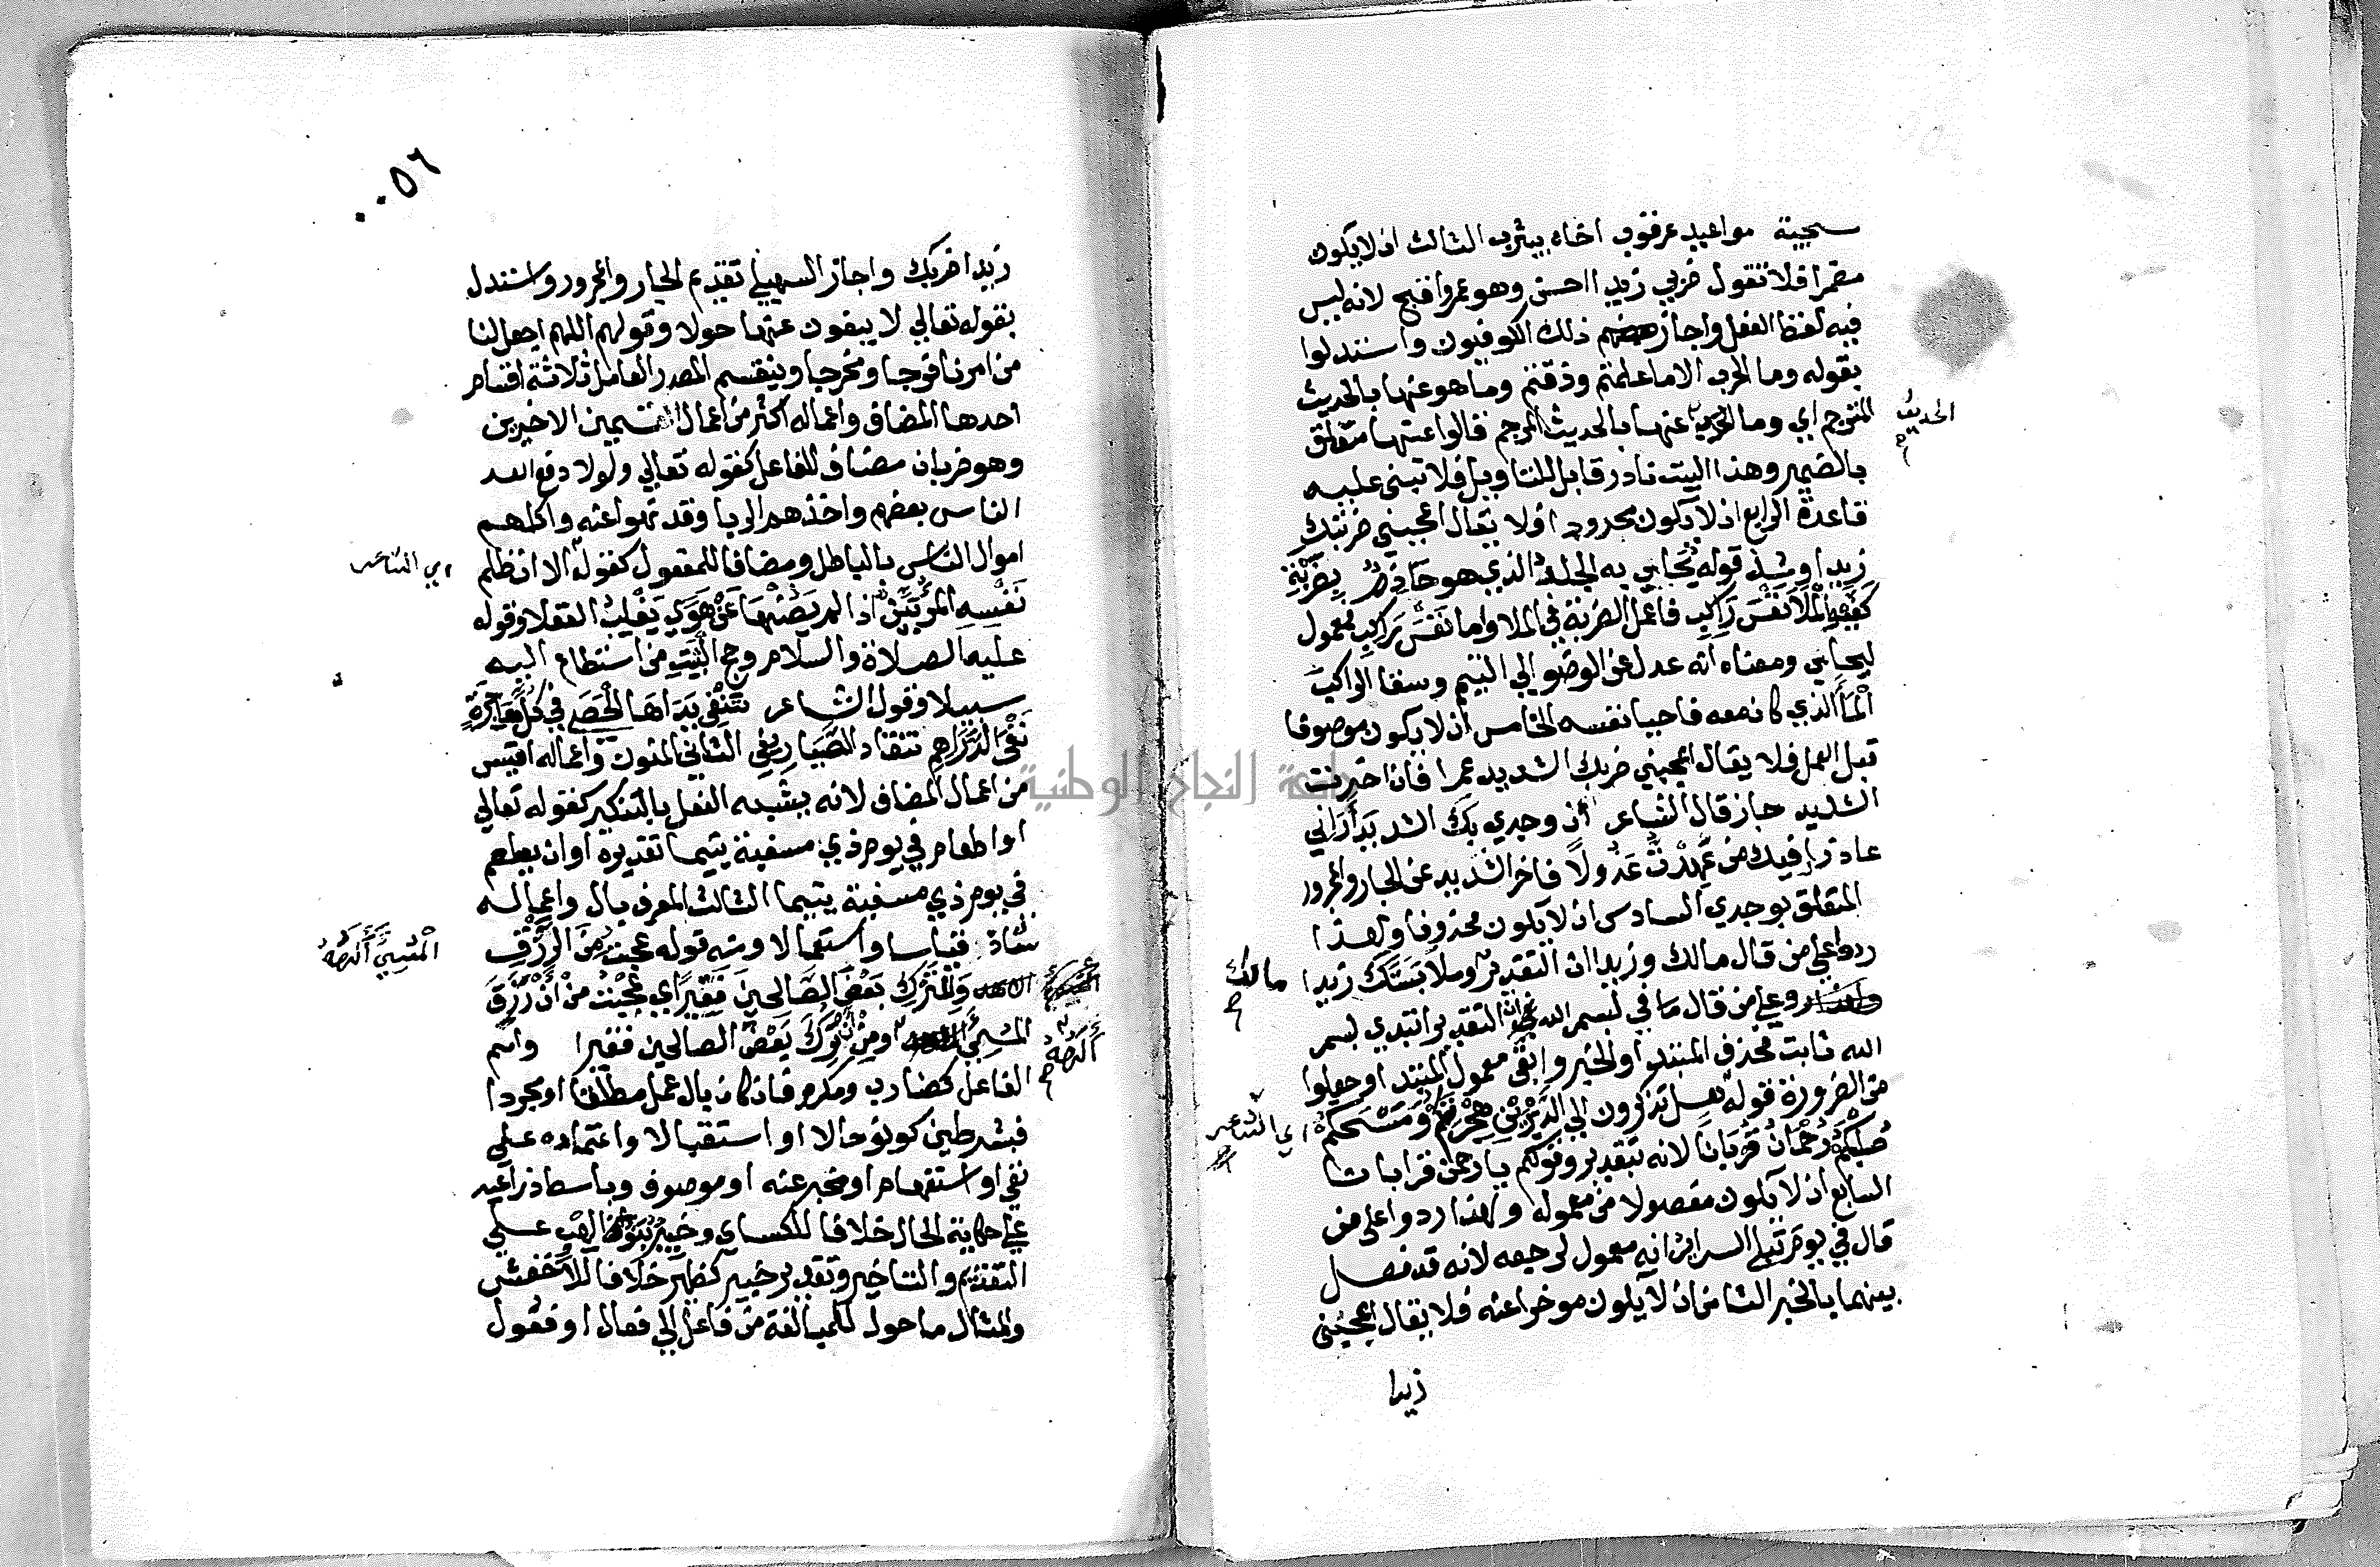 سجية مواعيد عرقوب اخاه بيثرب الثالث ان لا يكون
مضمرا فلا تقول ضربي زيدا احسن وهو عمروا قبيح لانه ليس
فيه لفظ الفعل واجاز ذلك الكوفيون واستدلوا
بقوله وما الحرب الا ما علمتم وذقتم وما هو عنها بالحديث
المترجم اي وما الحديث عنها بالحديث المرجم قالوا عنها متعلق
الحديث
بالضمير وهذا البيت نادر قابل للتاويل فلا تبنى عليه
قاعدة الرابع ان لا يكون محدودا فلا يقال اعجبني ضربتك
زيدا وشذ قوله يحابي به الجلد الذي هو حازم بضربة
كفيه الملا نفس راكب فاعمل الضربة في الملا واما نفس راكب فمعمول
ليحابي ومعناه انه عدل عن الوضو الي التيمم وسقا الراكب
الما الذي كان معه فاحيا نفسه الخامس ان لا يكون موصوفا
قبل العمل فلا يقال اعجبني ضربك الشديد عمرا فان اخرت
الشديد جاز قال الشاعر ان وجدي بك الشديد اراني
عاذرا فيك من عهدت عذولا فاخر الشديد عن الجار والمجرور
المتعلق بوجدي السادس ان لا يكون محذوفا ولهذا
ردوا علي من قال مالك وزيدا ان التقدير وملابستك زيدا
مالك
وعلي من قال ما في بسم الله ان التقدير ابتدي بسم
الله ثابت فحذف المبتدا والخبر وابقي معمول المبتدا وجعلوا
من الضرورة قوله هل تذكرون الي الديرين هجرتكم ومسحكم
اي الشاعر
صلبكم رحمان قربانا لانه بتقدير وقولكم يا رحمن قرابات
السابع ان لا يكون مفصولا من معموله ولهذا ردوا علي من
قال في يوم تبلي السراير انه معمول لرجعه لانه قد فصل
بينهما بالخبر الثامن ان لا يكون موخرا عنه فلا يقال اعجبني
زيدا
٠٠٥٦
زيدا ضربك واجاز السهيلي تقديم الجار والمجرور واستدل
بقوله تعالي لا يبغون عنها حولا وقولهم اللهم اجعل لنا
من امرنا فرجا ومخرجا وينقسم المصدر العامل ثلاثة اقسام
احدها المضاف واعماله اكثر من اعمال القسمين الاخيرين
وهو ضربان مضاف للفاعل كقوله تعالي ولولا دفع الله
الناس بعضهم واخذهم الربا وقد نهوا عنه واكلهم
اموال الناس بالباطل ومضافا للمفعول كقوله الا ان ظلم
اي الشاعر
نفسه المرء بين اذا لم يصنها عن هوي يغلب العقلا وقوله
عليه الصلاة والسلام وحج البيت من استطاع اليه
سبيلا وقول الشاعر تنفي يداها الحصي في كل هاجرة
نفي الدراهم تنقاد الصياريف الثاني المنون واعماله اقيس
من اعمال المضاف لانه يشبه الفعل بالتنكير كقوله تعالي
او اطعام في يوم ذي مسغبة يتيما تقديره او ان يطعم
في يوم ذي مسغبة يتيما الثالث المعرف بال واعماله
شاذ قياسا واستعمالا ومنه قوله عجبت من الرزق
المسيئ الهه
والترك بعض الصالحين فقيرا اي عجبت من ان رزق
المسيئ او من ان ترك بعض الصالحين فقيرا واسم
الهه
الفاعل كضارب ومكرم فان كان بال عمل مطلقا او مجردا
فبشرطين كونه حالا او استقبالا واعتماده علي
نفي او استفهام او مخبر عنه او موصوف وباسط ذراعيه
علي حكاية الحال خلافا للكساي وخبير بنو لهب علي
التقديم والتاخير وتقدير خبير كظهير خلافا للاخفش
والمثال ما حول للمبالغة من فاعل الي فعال او فعول
جامعة النجاح الوطنية